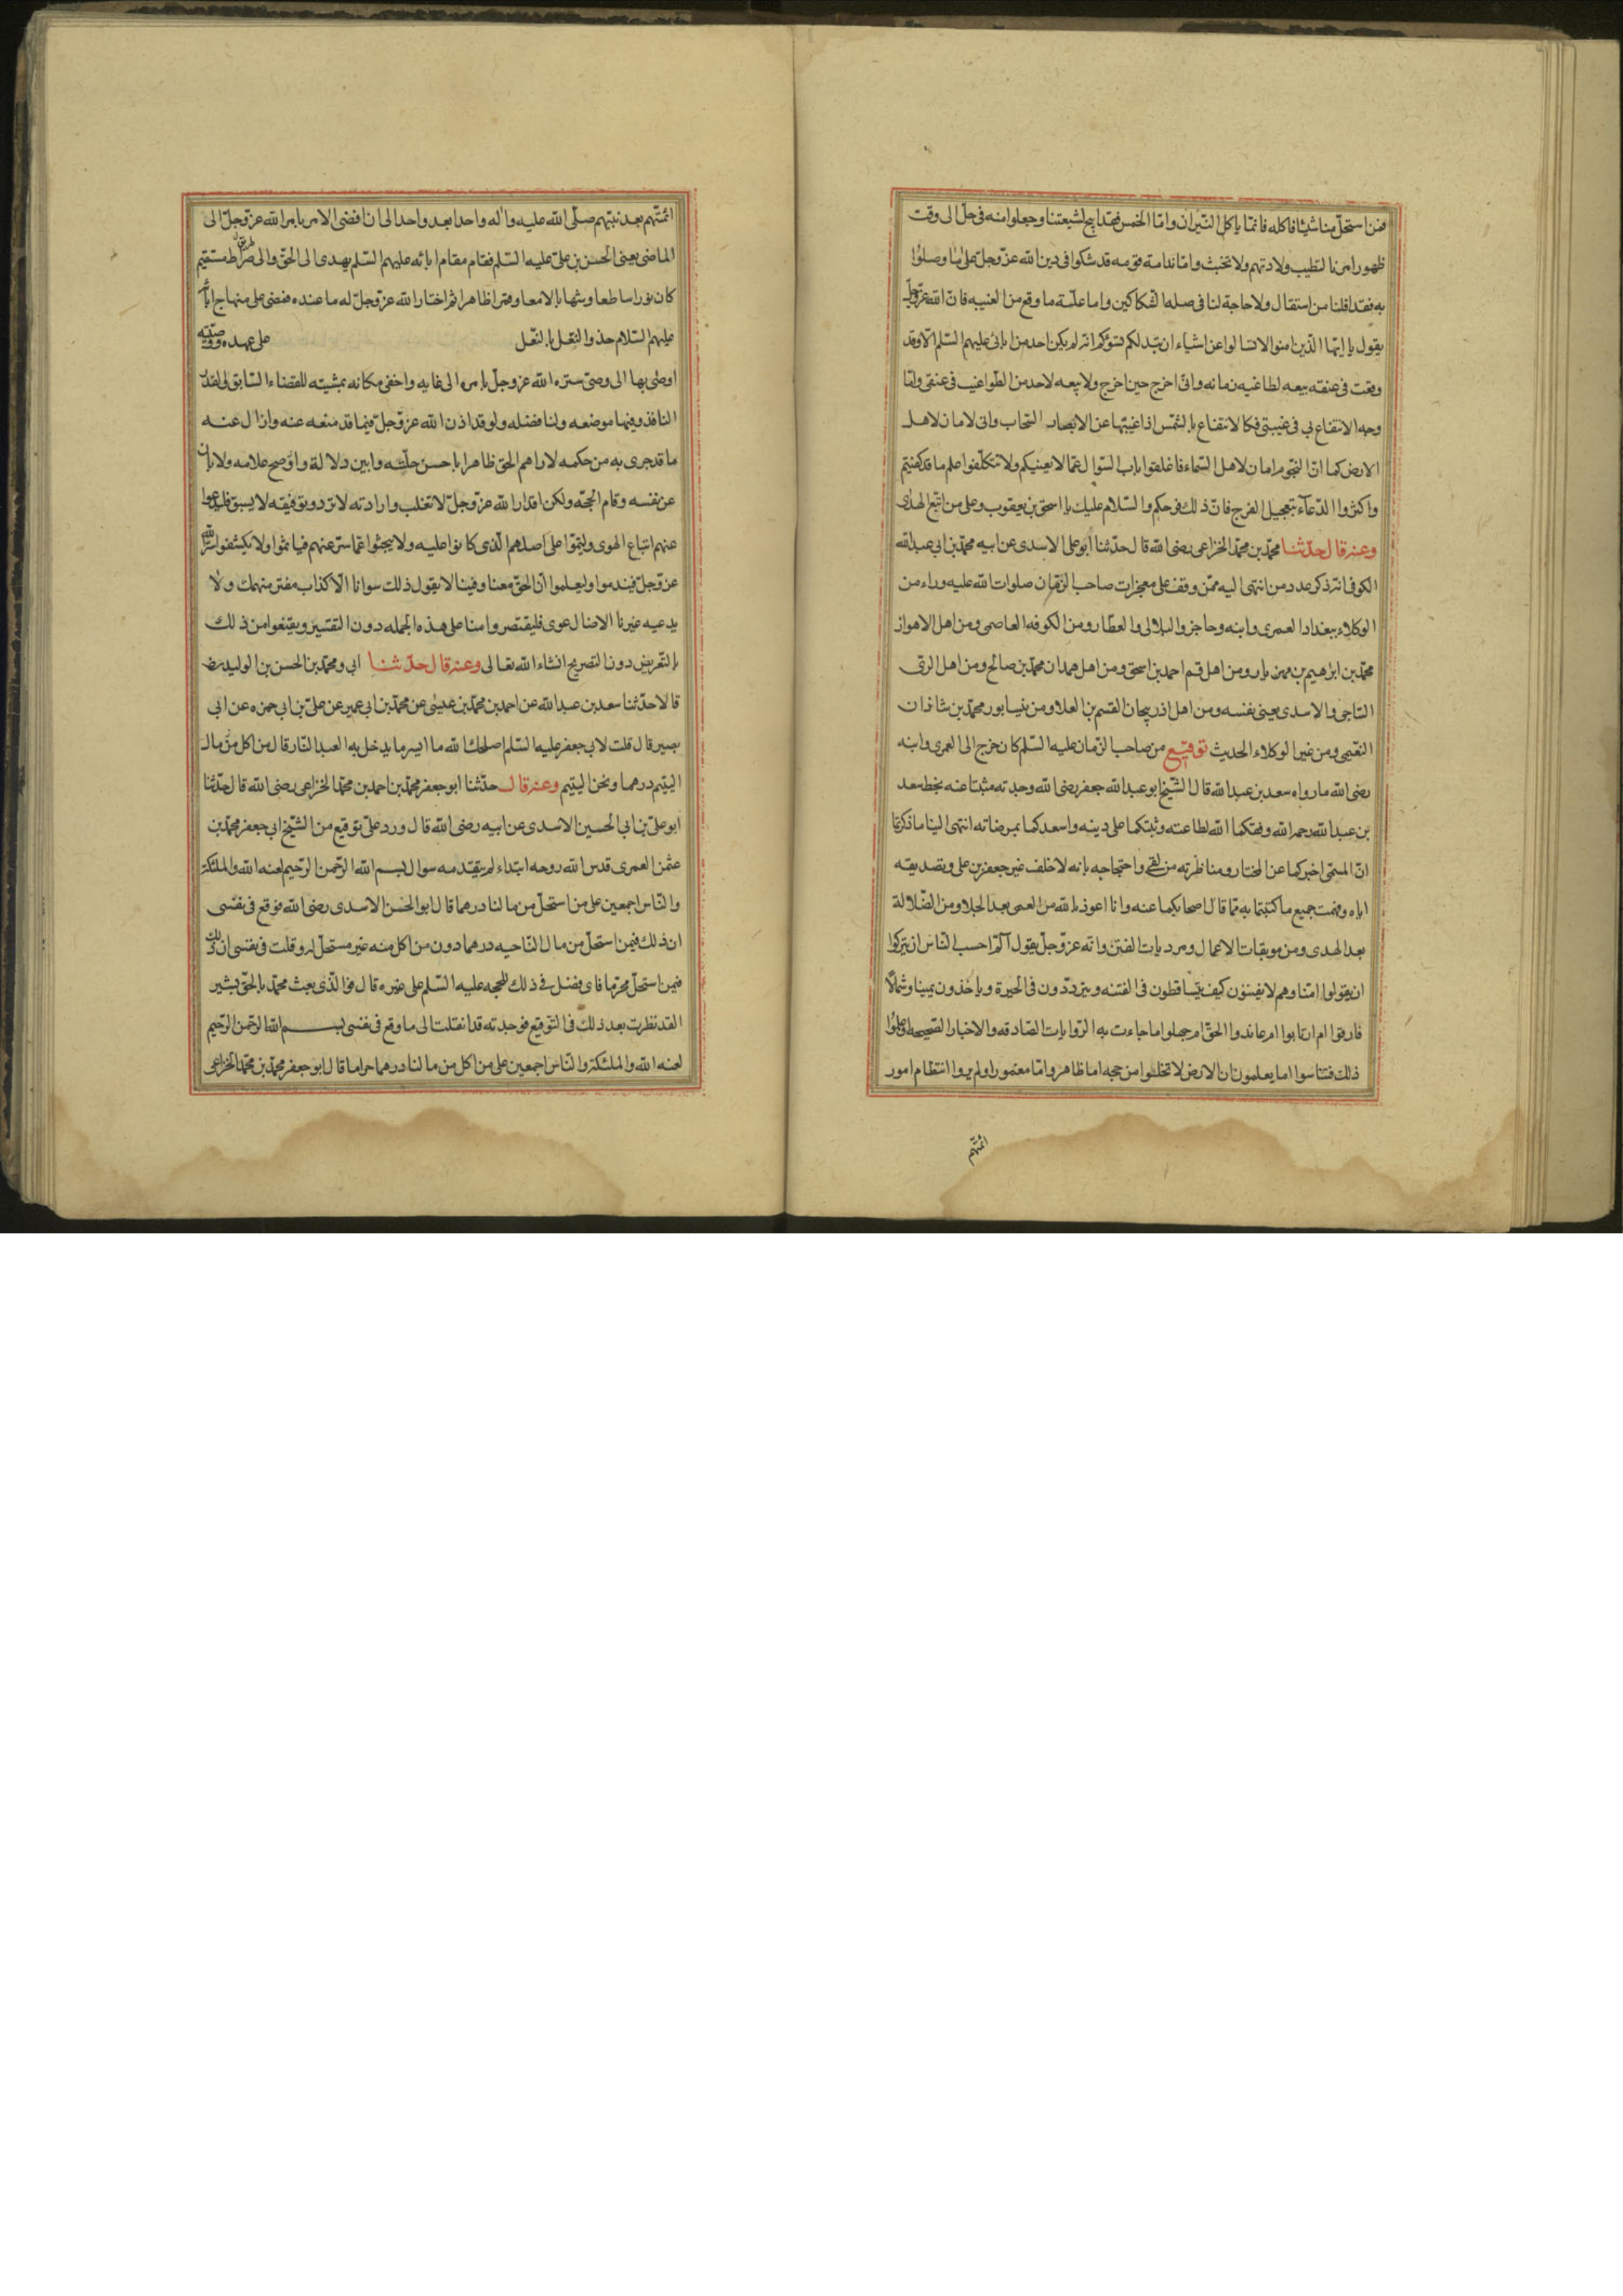 فمن استحل منا شيئا فاكله فانما ياكل النيران واما الخمس فقد ابيح لشيعتنا وجعلوا منه فى حل الى وقت
ظهور امرنا لتطيب ولادتهم ولا تخبث واما ندامة قوم قد شكوا فى دين الله عز وجل على ما وصلوا
به فقد اقلنا من استقال ولا حاجة لنا فى صله الشكاكين واما علة ما وقع من الغيبه فان الله عز وجل
يقول يا ايها الذين امنوا لا تسالوا عن اشياء ان تبد لكم تسؤكم انه لم يكن احد من ابائى عليهم السلم الا وقد
وقعت فى عنقه بيعه لطاغيه زمانه وانى اخرج حين اخرج ولا بيعه لاحد من الطواغيت فى عنقى واما
وجه الانتفاع بى فى غيبتى فكالانتفاع بالشمس اذا غيبتها عن الابصار السحاب وانى لامان لاهل
الارض كما ان النجوم امان لاهل السماء فاغلقوا باب السوال عما لا يعنيكم ولا تتكلفوا علم ما قد كفيتم
واكثروا الدعاء بتعجيل الفرج فان ذلك فرجكم والسلام عليك يا اسحق بن يعقوب وعلى من اتبع الهدى
وعنه قال حدثنا محمد بن محمد الخزاعى رضى الله قال حدثنا ابو على الاسدى عن ابيه محمد بن ابى عبد الله
الكوفى انه ذكر عدد من انتهى اليه ممن وقف على معجزات صاحب الزمان صلوات الله عليه وراه من
الوكلاء ببغداد العمرى وابنه وحاجز والبلالى والعطار ومن الكوفه العاصمى ومن اهل الاهواز
محمد بن ابراهيم بن مهزيار ومن اهل قم احمد بن اسحق ومن اهل همدان محمد بن صالح ومن اهل الرى
السامى والاسدى يعنى نفسه ومن اهل اذربيجان القسم بن العلا ومن نيسابور محمد بن شاذان
النعيمى ومن غير الوكلاء الحديث توقيع من صاحب الزمان عليه السلم كان خرج الى العمرى وابنه
رضى الله ما رواه سعد بن عبد الله قال الشيخ ابو عبد الله جعفر رضى الله وجدته مثبتا عنه بخط سعد
بن عبد الله رحمه الله وفقكما الله لطاعته وثبتكما على دينه واسعدكما بمرضاته انتهى الينا ما ذكرتما
ان الميثمى اخبركما عن المختار ومناظرته من لقى واحتجاجه بانه لا خلف غير جعفر بن على وتصديقه
اياه وفهمت جميع ما كتبتما به مما قال اصحابكما عنه وانا اعوذ بالله من العمى بعد الجلا ومن الضلالة
بعد الهدى ومن موبقات الاعمال ومرديات الفتن وانه عز وجل يقول الم احسب الناس ان يتركوا
ان يقولوا امنا وهم لا يفتنون كيف يتساقطون فى الفتنه ويترددون فى الحيرة وياخذون يمينا وشمالا
فارقوا ام ارتابوا ام عاندوا الحق ام جهلوا ما جاءت به الروايات الصادقه والاخبار الصحيحه او علموا
ذلك فتناسوا اما يعلمون ان الارض لا تخلوا من حجه اما ظاهر واما مغمور اولم يروا انتظام امور
ائمتهم
ائمتهم بعد نبيهم صلى الله عليه واله واحدا بعد واحد الى ان افضى الامر بامر الله عز وجل الى
الماضى يعنى الحسن بن على عليه السلم فقام مقام ابائه عليهم السلم يهدى الى الحق والى صراط مستقيم
طريق
كان نورا ساطعا وشهابا لامعا وقمرا ظاهرا ثم اختار الله عز وجل له ما عنده فمضى على منهاج ابائه
عليهم السلام حذو النعل بالنعل على عهده ووصيته
اوصى بها الى وصى ستره الله عز وجل بامره الى غايه واخفى مكانه بمشيته للقضاء السابق والقدر
النافذ وفينا موضعه ولنا فضله ولو قد اذن الله عز وجل فيما قد منعه عنه وازال عنه
ما قد جرى به من حكمه لاراهم الحق ظاهرا باحسن حليه وابين دلالة واوضح علامه ولابان
عن نفسه وقام الحجه ولكن اقدار الله عز وجل لا تغلب وارادته لا ترد وتوفيقه لا يسبق فليدعوا
عنهم اتباع الهوى وليقموا على اصلهم الذى كانوا عليه ولا يبحثوا عما ستر عنهم فياثموا ولا يكشفوا ستر الله
عز وجل فيندموا وليعلموا ان الحق معنا وفينا لا يقول ذلك سوانا الا كذاب مفتر منهمك ولا
يدعيه غيرنا الا ضال غوى فليقتصروا منا على هذه الجمله دون التفسير ويقنعوا من ذلك
بالتعريض دون التصريح انشاء الله تعالى وعنه قال حدثنا ابى ومحمد بن الحسن بن الوليد رض
قالا حدثنا سعد بن عبد الله عن احمد بن محمد بن عيسى عن محمد بن ابى عمير عن على بن ابى حمزه عن ابى
بصير قال قلت لابى جعفر عليه السلم اصلحك الله ما ايسر ما يدخل به العبد النار قال من اكل من مال
اليتيم درهما ونحن اليتيم وعنه قال حدثنا ابو جعفر محمد بن احمد بن محمد الخزاعى رضى الله قال حدثنا
ابو على بن ابى الحسين الاسدى عن ابيه رضى الله قال ورد على توقيع من الشيخ ابى جعفر محمد بن
عثمن العمرى قدس الله روحه ابتداء لم يتقدمه سوال بسم الله الرحمن الرحيم لعنه الله والملئكة
والناس اجمعين على من استحل من مالنا درهما قال ابو الحسن الاسدى رضى الله فوقع فى نفسى
ان ذلك فيمن استحل من مال الناحيه درهما دون من اكل منه غير مستحل له وقلت فى نفسى ان ذلك
فيمن استحل محرما فاى فضل فى ذلك للحجه عليه السلم على غيره قال فوالذى بعث محمد بالحق بشير
القد نظرت بعد ذلك فى التوقيع فوجدته قد انقلب الى ما وقع فى نفسى بسم الله الرحمن الرحيم
لعنه الله والملئكة والناس اجمعين على من اكل من مالنا درهما حراما قال ابو جعفر محمد بن محمد الخزاعى